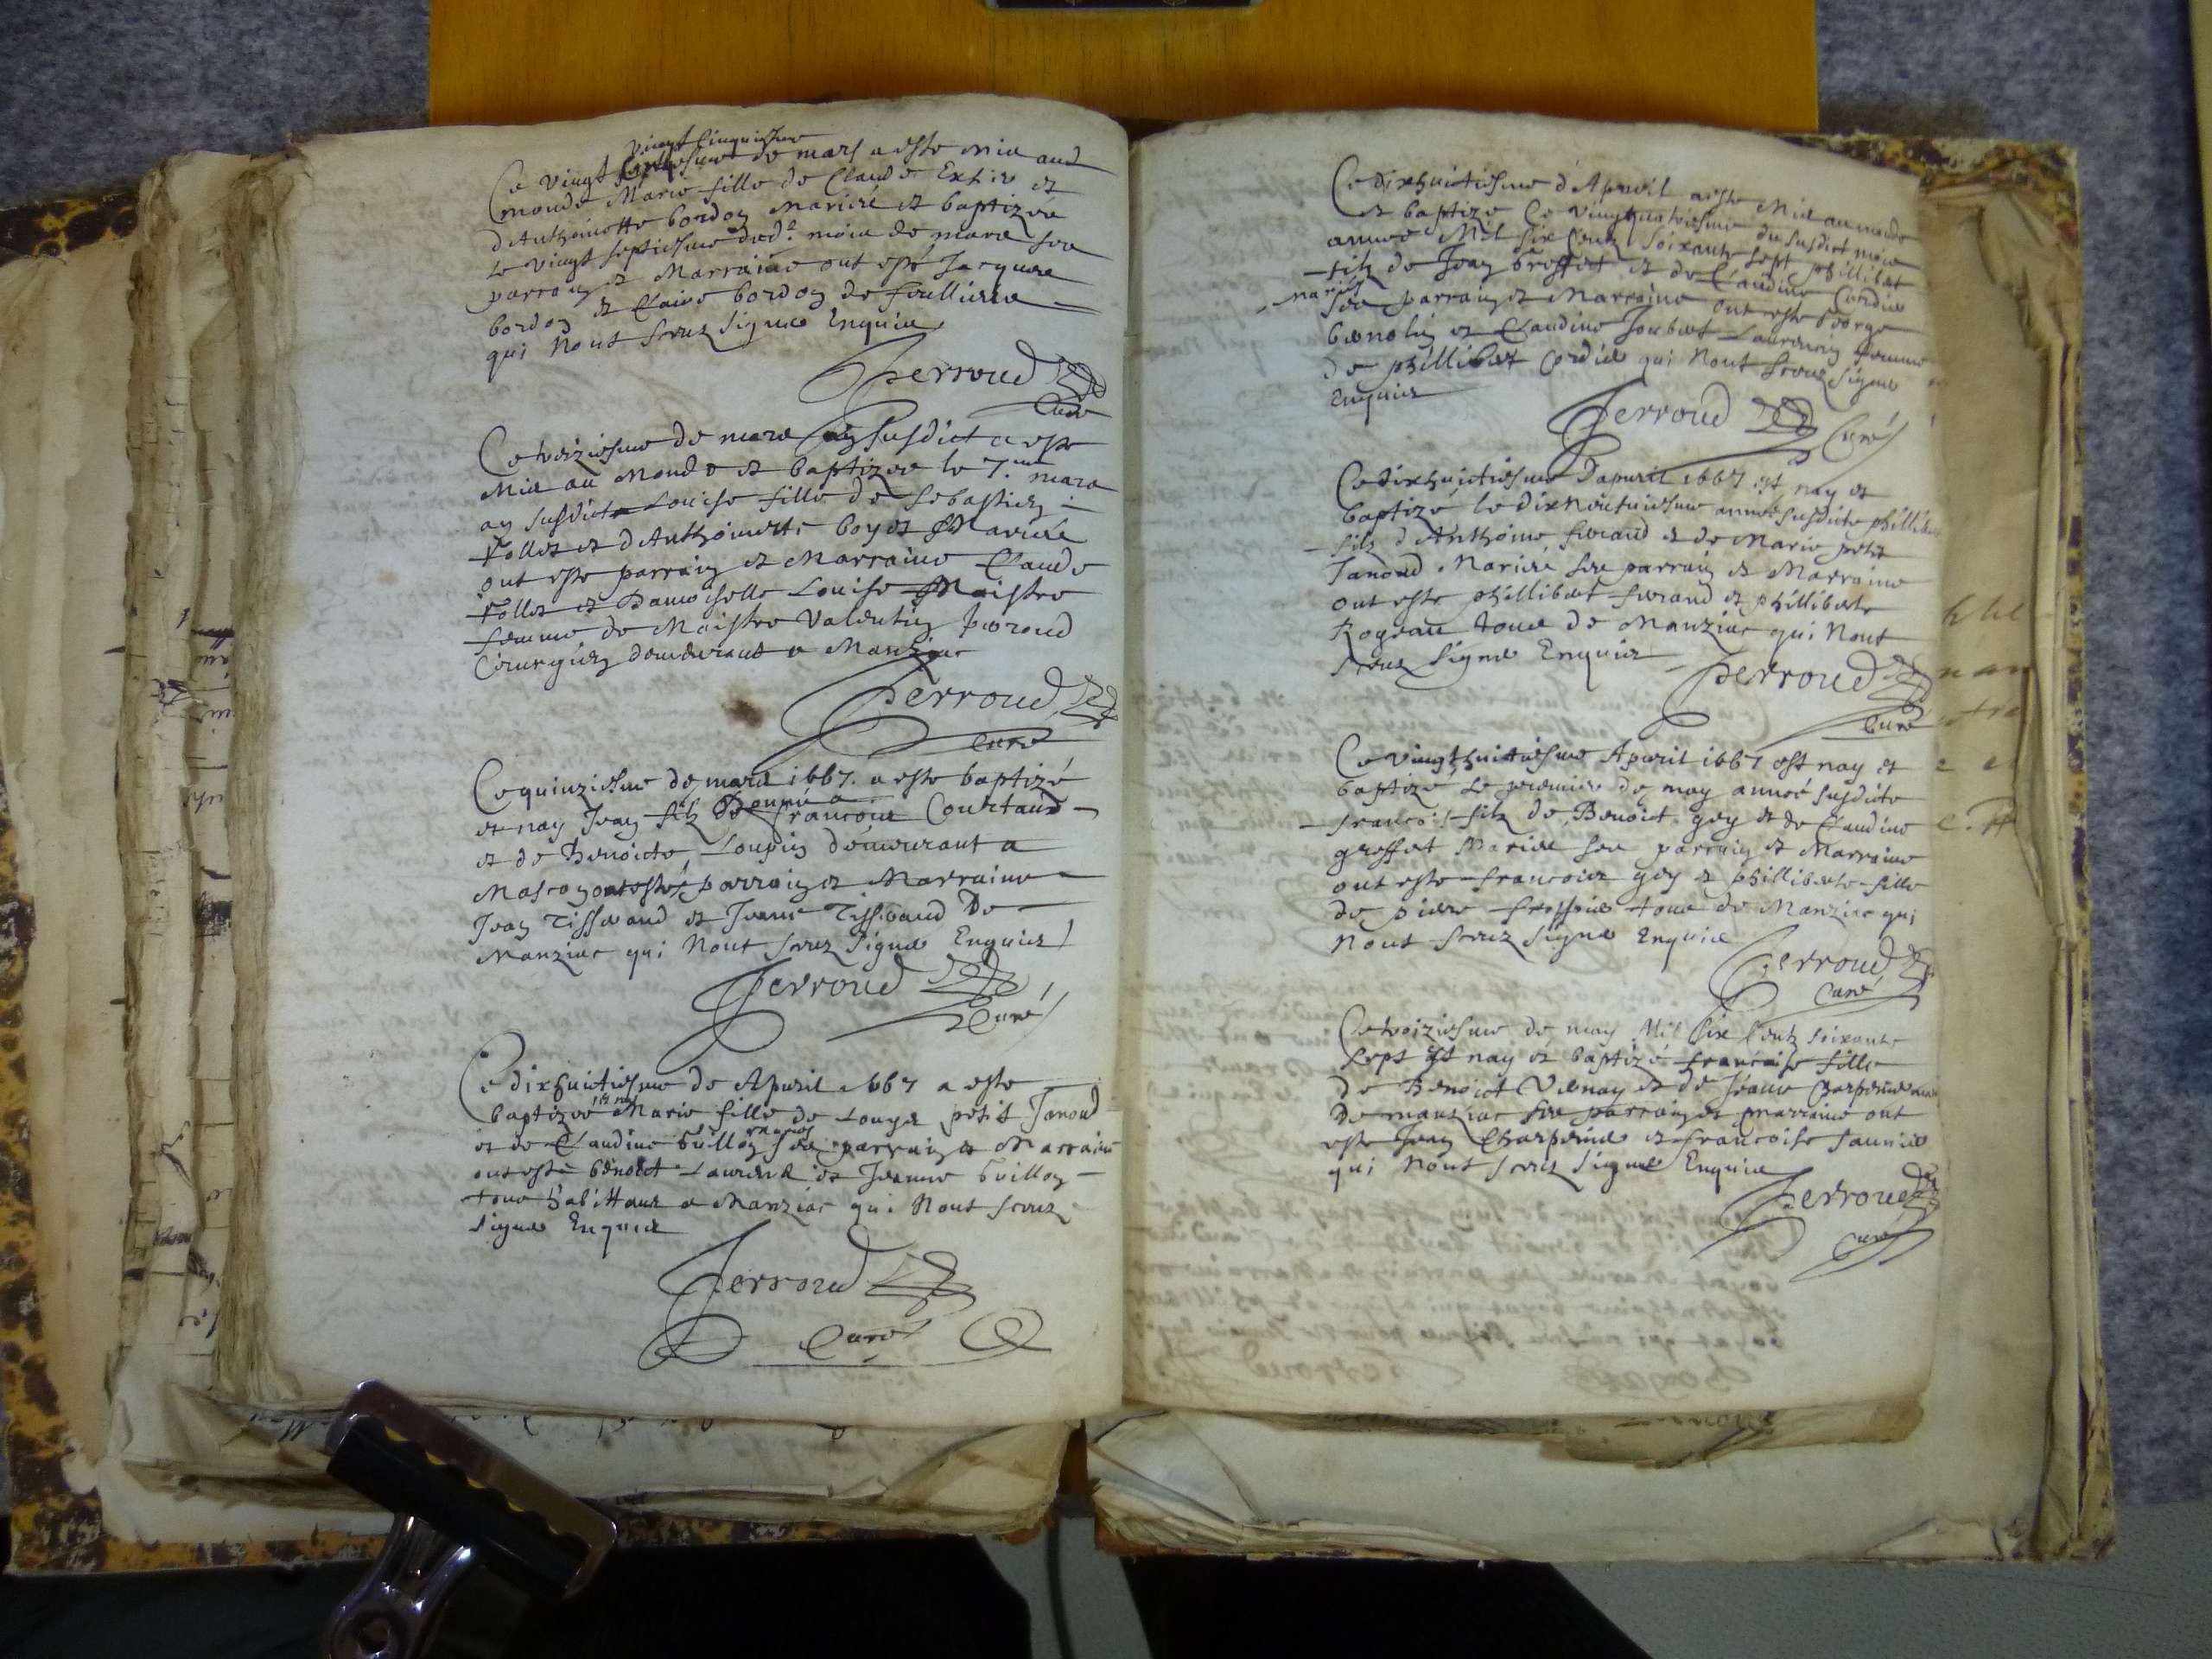 vingt cinquiesme
Ce vingt de mars a esté mis aud
monde Marie fille de Claude et
d'Anthoinette bordon Mariés et baptizée
le vingt septiesme dud. mois de mars ses
parrain et Marraine ont esté Jacques
bordon et Claire bordon de
qui nont sceuz signer Enquis
Perroud
Curé
Ce treiziesme de mars an susdict a esté
Mis au Monde et baptizee le mars
an susdict Louise fille de Sebastien
follet et d'Anthoinette boyet Mariés
ont esté parrain et Marraine Claude
follet et Damoiselle Louise Maistre
femme de Maistre Valentin Perroud
Cirurgien demeurant a Manziac
Perroud
Curé
Ce quinziesme de mars 1667. a esté baptizé
et nay Jean filz francois Courtaud
et de Benoicte Loupin demeurant a
Mascon parrain et Marraine
Jean Tisserand et Jeane Tisserand De
Manziac qui Nont sceuz signer Enquis
Perroud
Curé
Ce dixhuictiesme de Apuril 1667 a esté
baptizee Marie fille de Louys petit Janoud
et de Claudine Guillon ses parrain et Marraine
ont esté benoict Laurens et Jeanne Guillon
tous habittans a Manziac qui Nont sceuz
signer Enquis
Perroud
Curé
Ce dixhuictiesme d'Apuril a esté Mis au monde
et baptizé Ce vingtquatriesme du susdict mois
annee Mil six Centz soixante sept phillibert
filz de Jean et de Claudine Cordier
mariés
ses parrain et Marraine ont esté George
et Claudine Joubert femme
de phillibert Cordier qui Nont sceuz signer
Enquis
Perroud
Curé
Ce dixhuictiesme Dapuril 1667 est nay et
baptizé le dixneufuiesme année susdicte phillibert
filz d'Anthoine feraud et de Marie petit
Janoud Mariés ses parrain et Marraine
ont esté phillibert feraud et philliberte
Rogeau tous de Manziac qui Nont
sceuz signer Enquis
Perroud
Curé
Ce vingthuictiesme Apuril 1667 est nay et
baptizé le premier de may année susdicte
francois filz de Benoict gey et de Claudine
greffet Mariés ses parrain et Marraine
ont esté francois gey et philliberte fille
de piere tous de Manziac qui
Nont sceuz signer Enquis
Perroud
Curé
Ce treiziesme de may Mil six Centz soixante
sept est nay et baptizé francoise fille
de Benoict Venay et de Jeane
De manziac ses parrain et marraine ont
esté Jean Charpenne et francoise saunier
qui Nont sceuz signer Enquis
Perroud
Curé